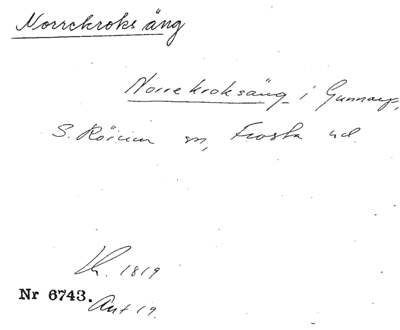 Norrekroksäng
Norrekroksäng i Gunnarp,
S. Rörum sn, Frosta hd.
Lk. 1819
Nr 6743.
Akt 19.